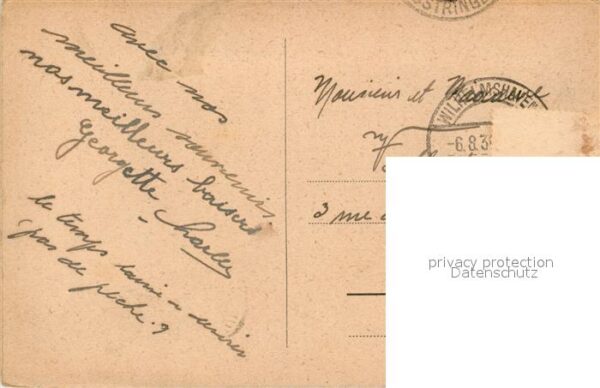 avec nos
meilleurs souvenirs
nos meilleurs baisers
Georgette - Charles
le temps
pas de pêche?
Monsieur et Madame
3 rue
WILHELMSHAVEN
-6.8.3
privacy protection
Datenschutz